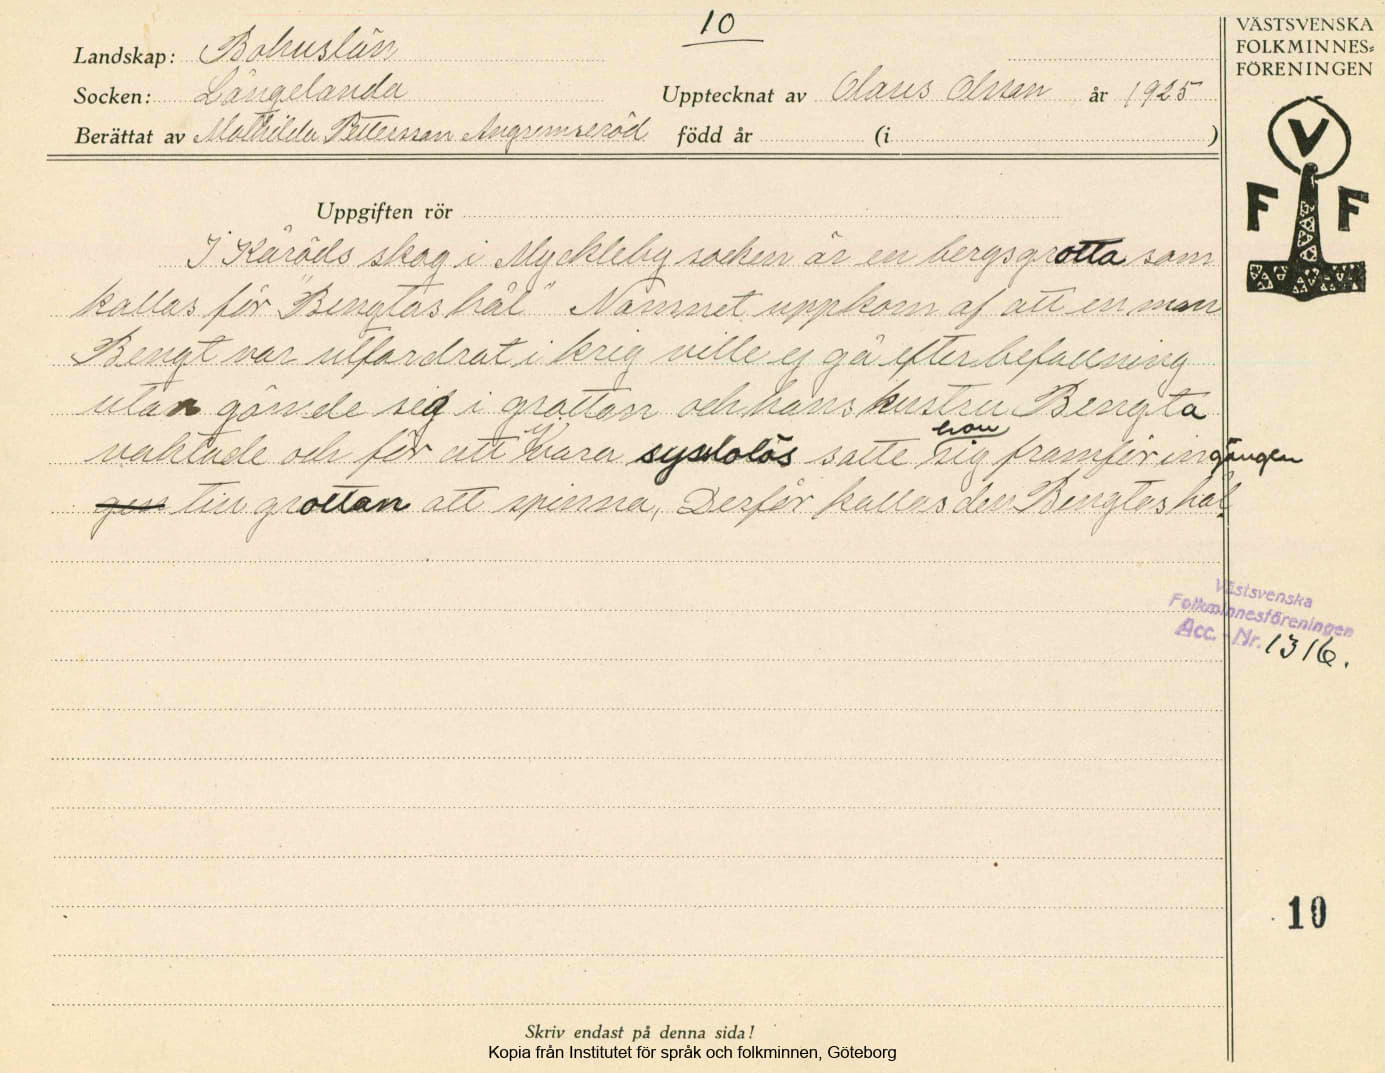 10
VÄSTSVENSKA
FOLKMINNES=
FÖRENINGEN
Landskap: Bohuslän
Socken: Långelanda
Upptecknat av Olaus Olsson år 1925
Berättat av Mathilda Pettersson Angrimseröd född år (i )
V
F F
Uppgiften rör
I Kåröds skog i Myckleby socken är en bergsgrotta som
kallas för "Bengtas hål" Namnet uppkom af att en man
Bengt var utfordrat i krig ville ej gå efter befallning
utan gömde sig i grottan och hans hustru Bengta
vaktade och för att ej vara sysslolös satte hon sig framför ingången
till grottan att spinna, Derför kallas den Bengtas hål
Västsvenska
Folkminnesföreningen
Acc. - Nr. 1316.
10
Skriv endast på denna sida!
Kopia från Institutet för språk och folkminnen, Göteborg